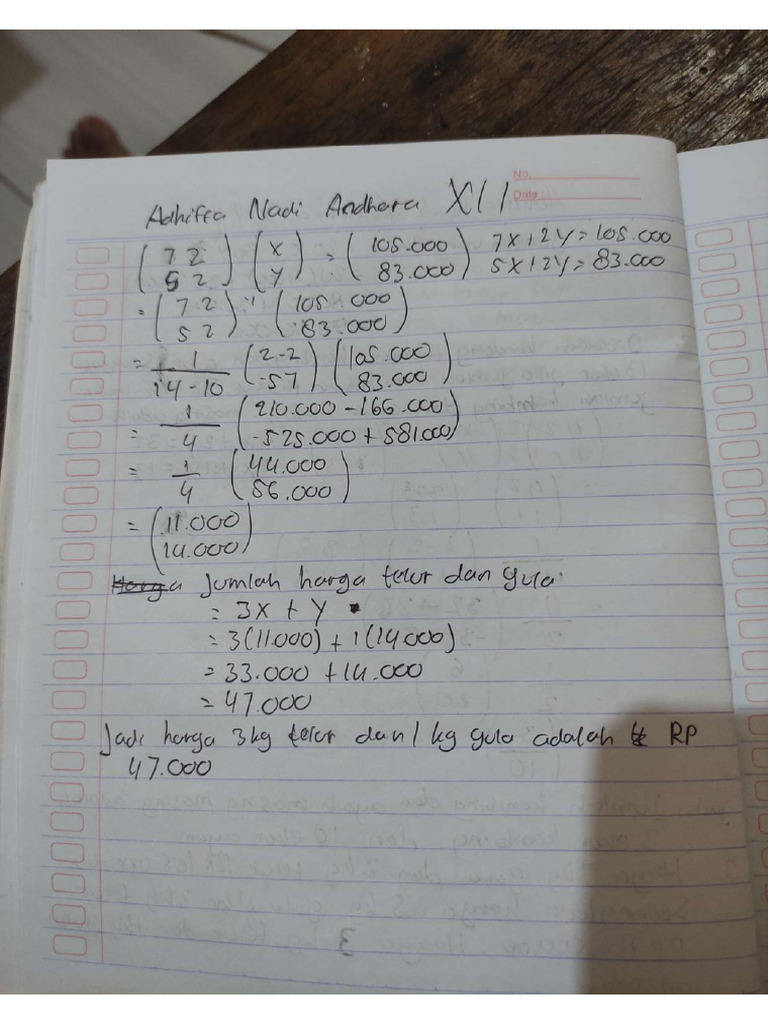 No.
Date:
Adhifra Nadi Andhara XII
(7 2) (x) = (105.000) 7x+2y=105.000
(5 2) (y) (83.000) 5x+2y=83.000
= (7 2)⁻¹ (105.000)
(5 2) (83.000)
= 1 (2 -2) (105.000)
14-10 (-5 7) (83.000)
= 1 (210.000 - 166.000)
4 (-525.000 + 581.000)
= 1 (44.000)
4 (56.000)
= (11.000)
(14.000)
Jumlah harga telur dan gula:
= 3x + y
= 3(11.000) + 1(14.000)
= 33.000 + 14.000
= 47.000
Jadi harga 3kg telur dan 1 kg gula adalah RP
47.000